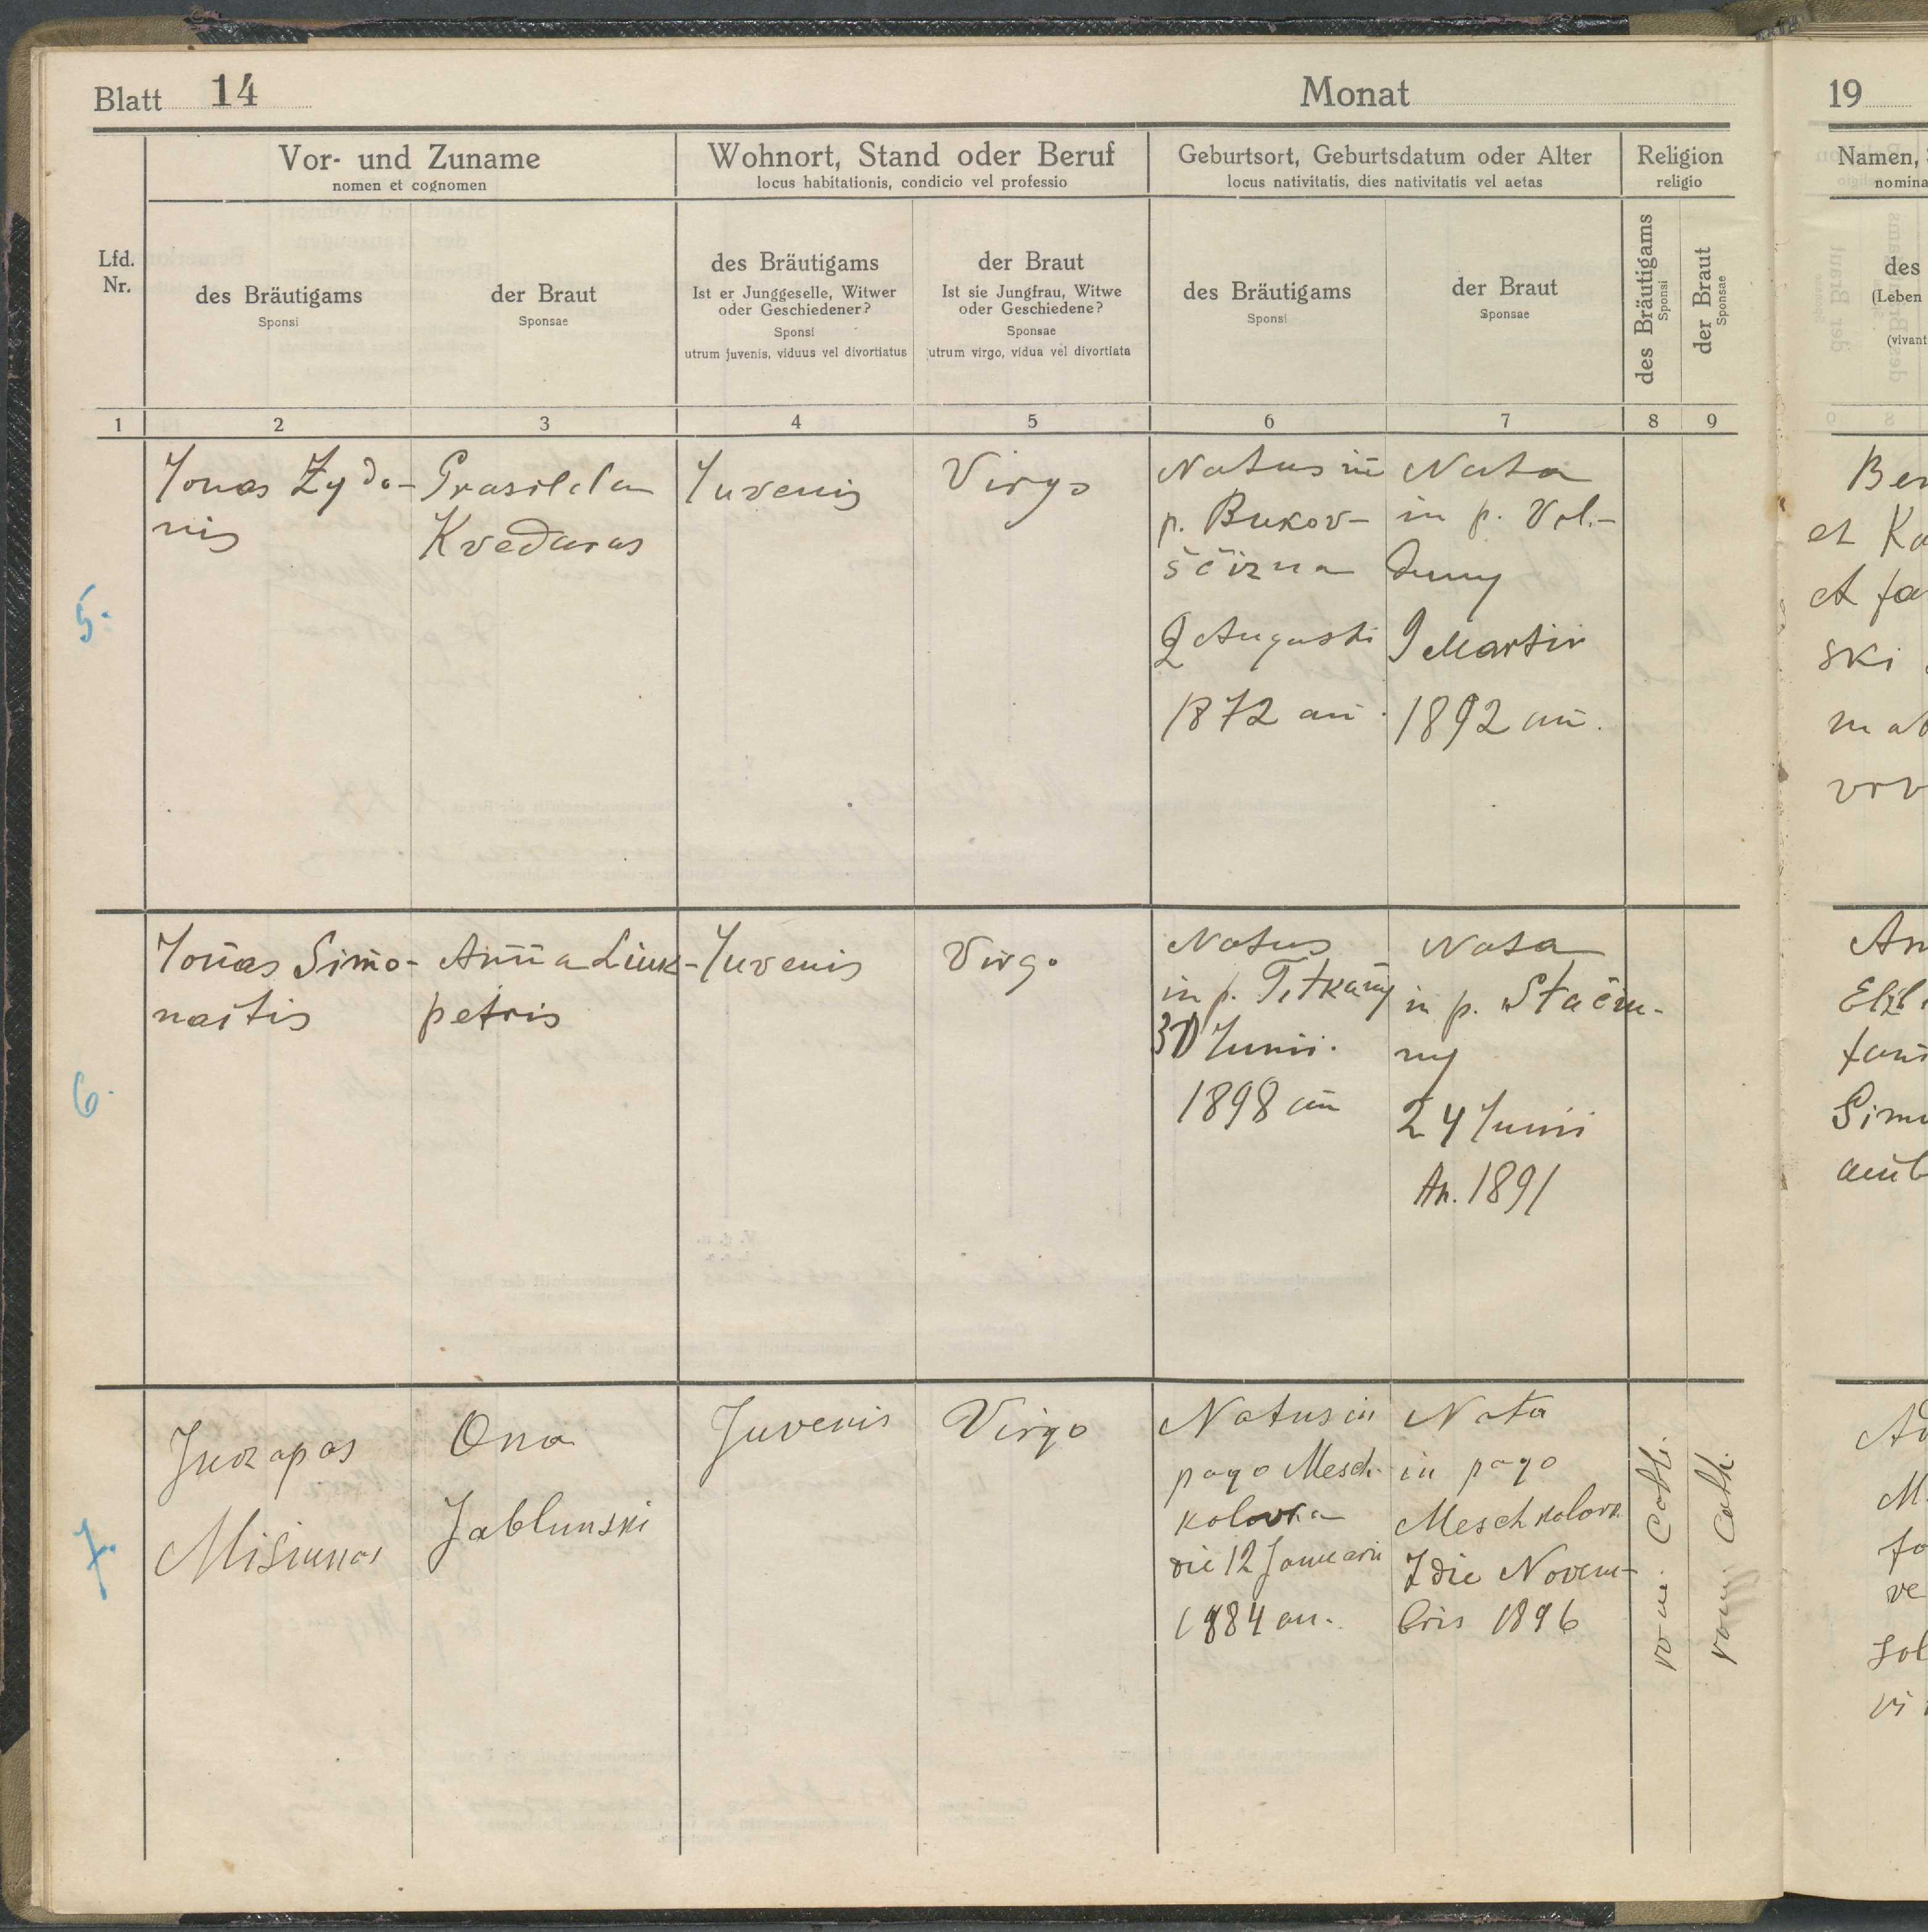 Blatt 14
Monat
19
Vor- und Zuname
nomen et cognomen
Wohnort, Stand oder Beruf
locus habitationis, condicio vel professio
Geburtsort, Geburtsdatum oder Alter
locus nativitatis, dies nativitatis vel aetas
Religion
religio
Namen,
nomina
Lfd.
Nr.
des Bräutigams
Sponsi
der Braut
Sponsae
des Bräutigams
Ist er Junggeselle, Witwer
oder Geschiedener?
Sponsi
utrum juvenis, viduus vel divortiatus
der Braut
Ist sie Jungfrau, Witwe
oder Geschiedene?
Sponsae
utrum virgo, vidua vel divortiata
des Bräutigams
Sponsi
der Braut
Sponsae
des Bräutigams
Sponsi
der Braut
Sponsae
des
(Leben
(vivant
1
2
3
4
5
6
7
8
9
5.
Jonas Zydo-
nis
Prasilda
Kvedaras
Juvenis
Virgo
Natus in
p. Bukov-
ščizna
2 Augusti
1872 an.
Nata
in p. Vol-
duny
9 Martii
1892 an.
Ber
et Ka
et fa
ski
mat
6.
Jonas Simo-
naitis
Anna Liuk-
petris
Juvenis
Virgo
Natus
in p. Titkany
30 Junii.
1898 an
Nata
in p. Stačiu-
ny
24 Junii
An. 1891
An
Elzb
Simo
amb
7.
Juozapas
Misiunas
Ona
Jablunski
Juvenis
Virgo
Natus in
pago Mesch-
kolovka
die 12 Januarii
1884 an.
Nata
in pago
Meschkolovk.
7 die Novem-
bris 1896
rom. Cath.
rom. Cath.
M.
fa
ve